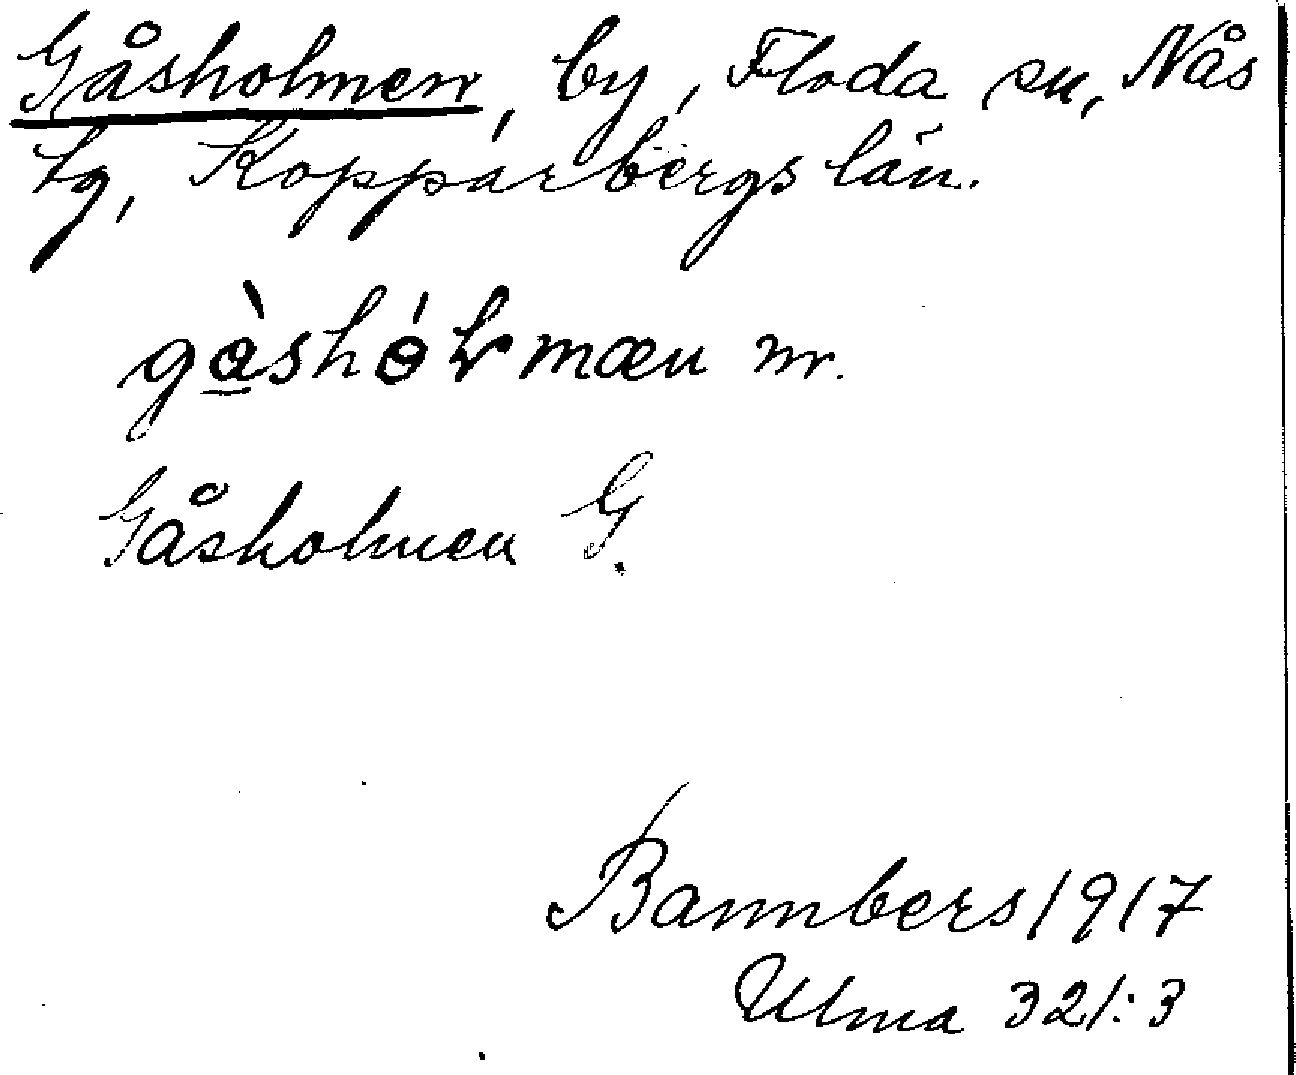 Gåsholmen, by, Floda sn, Nås
tg, Kopparbergs län.
gàshólmæn m.
Gåsholmen G.
Bannbers 1917
Ulma 321:3